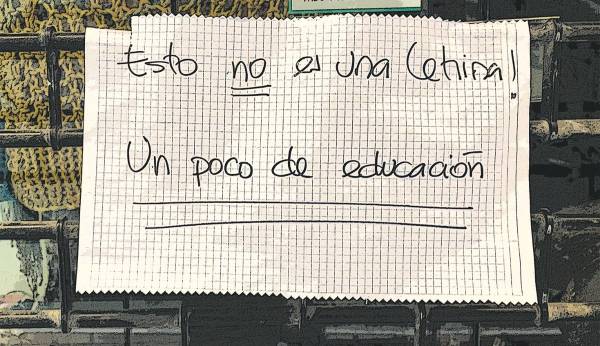 Esto no es una letrina!
Un poco de educación